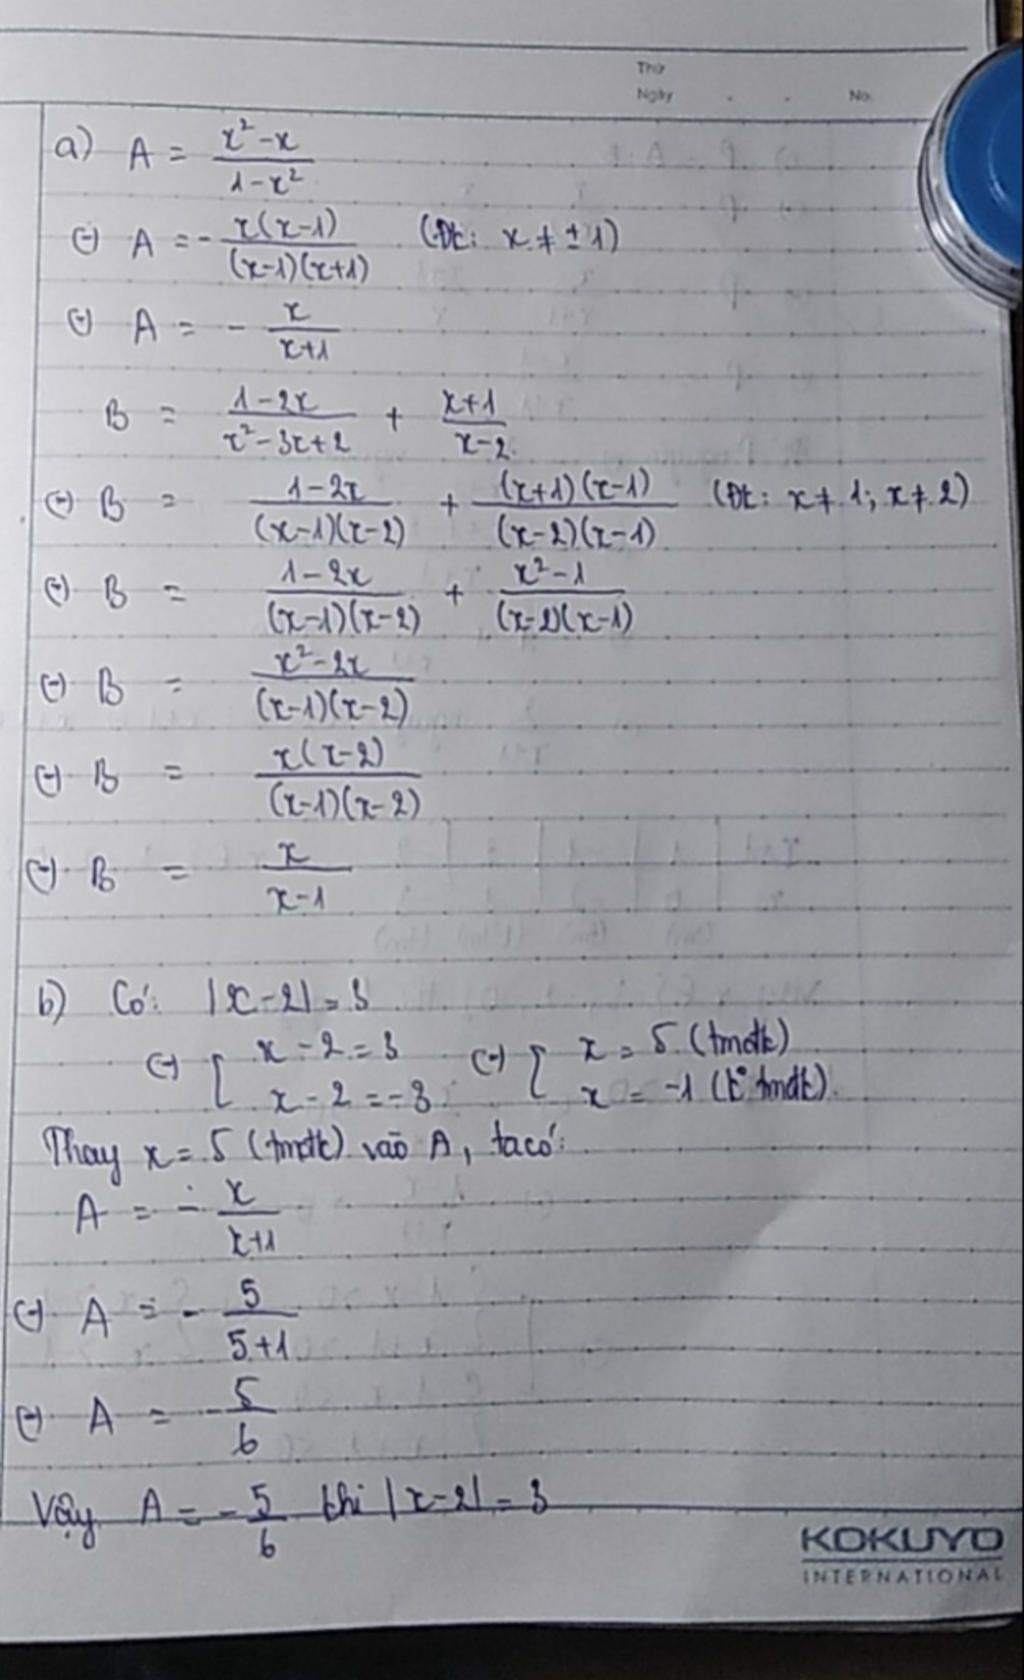 Thứ
Ngày . . No.
a) A = (x² - x)/(1 - x²)
(-) A = - x(x-1)/((x-1)(x+1)) (Đk: x ≠ ±1)
(-) A = - x/(x+1)
B = (1-2x)/(x²-3x+2) + (x+1)/(x-2)
(-) B = (1-2x)/((x-1)(x-2)) + (x+1)(x-1)/((x-2)(x-1)) (Đk: x ≠ 1; x ≠ 2)
(-) B = (1-2x)/((x-1)(x-2)) + (x²-1)/((x-2)(x-1))
(-) B = (x²-2x)/((x-1)(x-2))
(-) B = x(x-2)/((x-1)(x-2))
(-) B = x/(x-1)
b) Có: |x-2| = 3
(-) [ x - 2 = 3 (-) [ x = 5 (tmđk)
x - 2 = -3 x = -1 (k° tmđk)
Thay x = 5 (tmđk) vào A, ta có:
A = - x/(x+1)
(-) A = - 5/(5+1)
(-) A = - 5/6
Vậy A = - 5/6 khi |x-2| = 3
KOKUYO
INTERNATIONAL